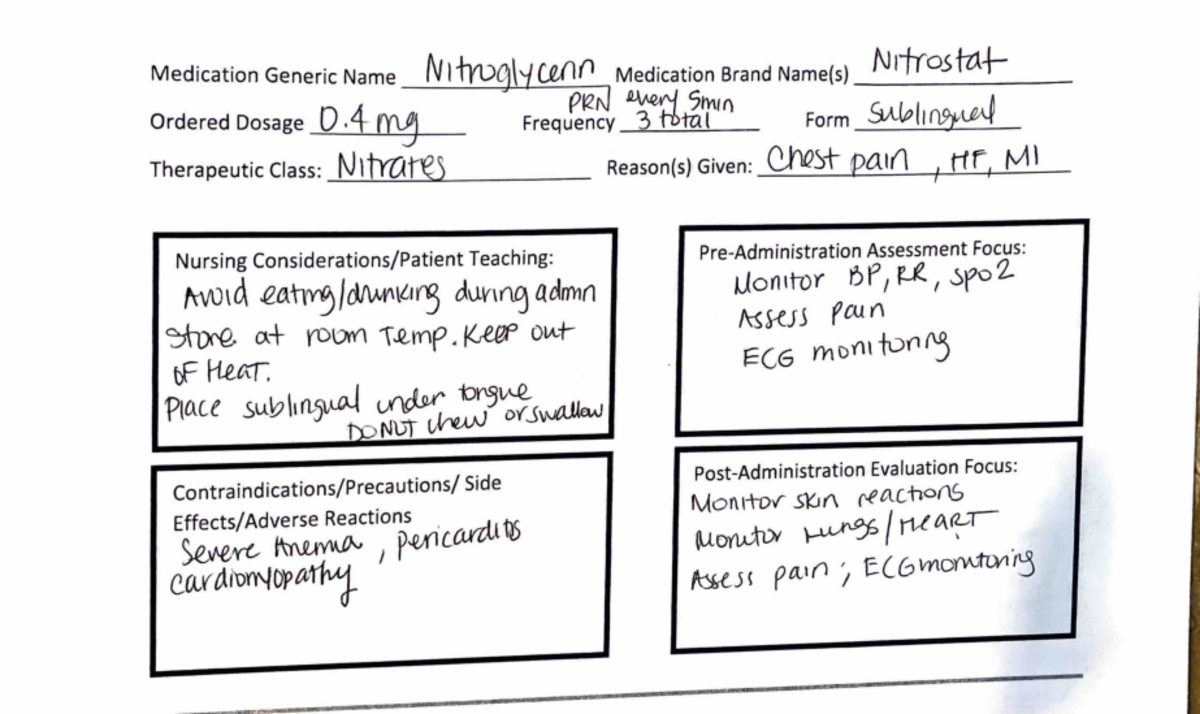 Medication Generic Name Nitroglycerin Medication Brand Name(s) Nitrostat
Ordered Dosage 0.4 mg Frequency PRN every 5min 3 total Form Sublingual
Therapeutic Class: Nitrates Reason(s) Given: Chest pain, HF, MI
Nursing Considerations/Patient Teaching:
Avoid eating/drinking during admn
Store at room Temp. Keep out
OF HEAT.
Place sublingual under tongue
DO NOT chew or swallow
Pre-Administration Assessment Focus:
Monitor BP, RR, SpO2
Assess Pain
ECG monitoring
Contraindications/Precautions/ Side
Effects/Adverse Reactions
Severe Anemia, pericarditis
cardiomyopathy
Post-Administration Evaluation Focus:
Monitor skin reactions
Monitor Lungs/HEART
Assess pain; ECG monitoring